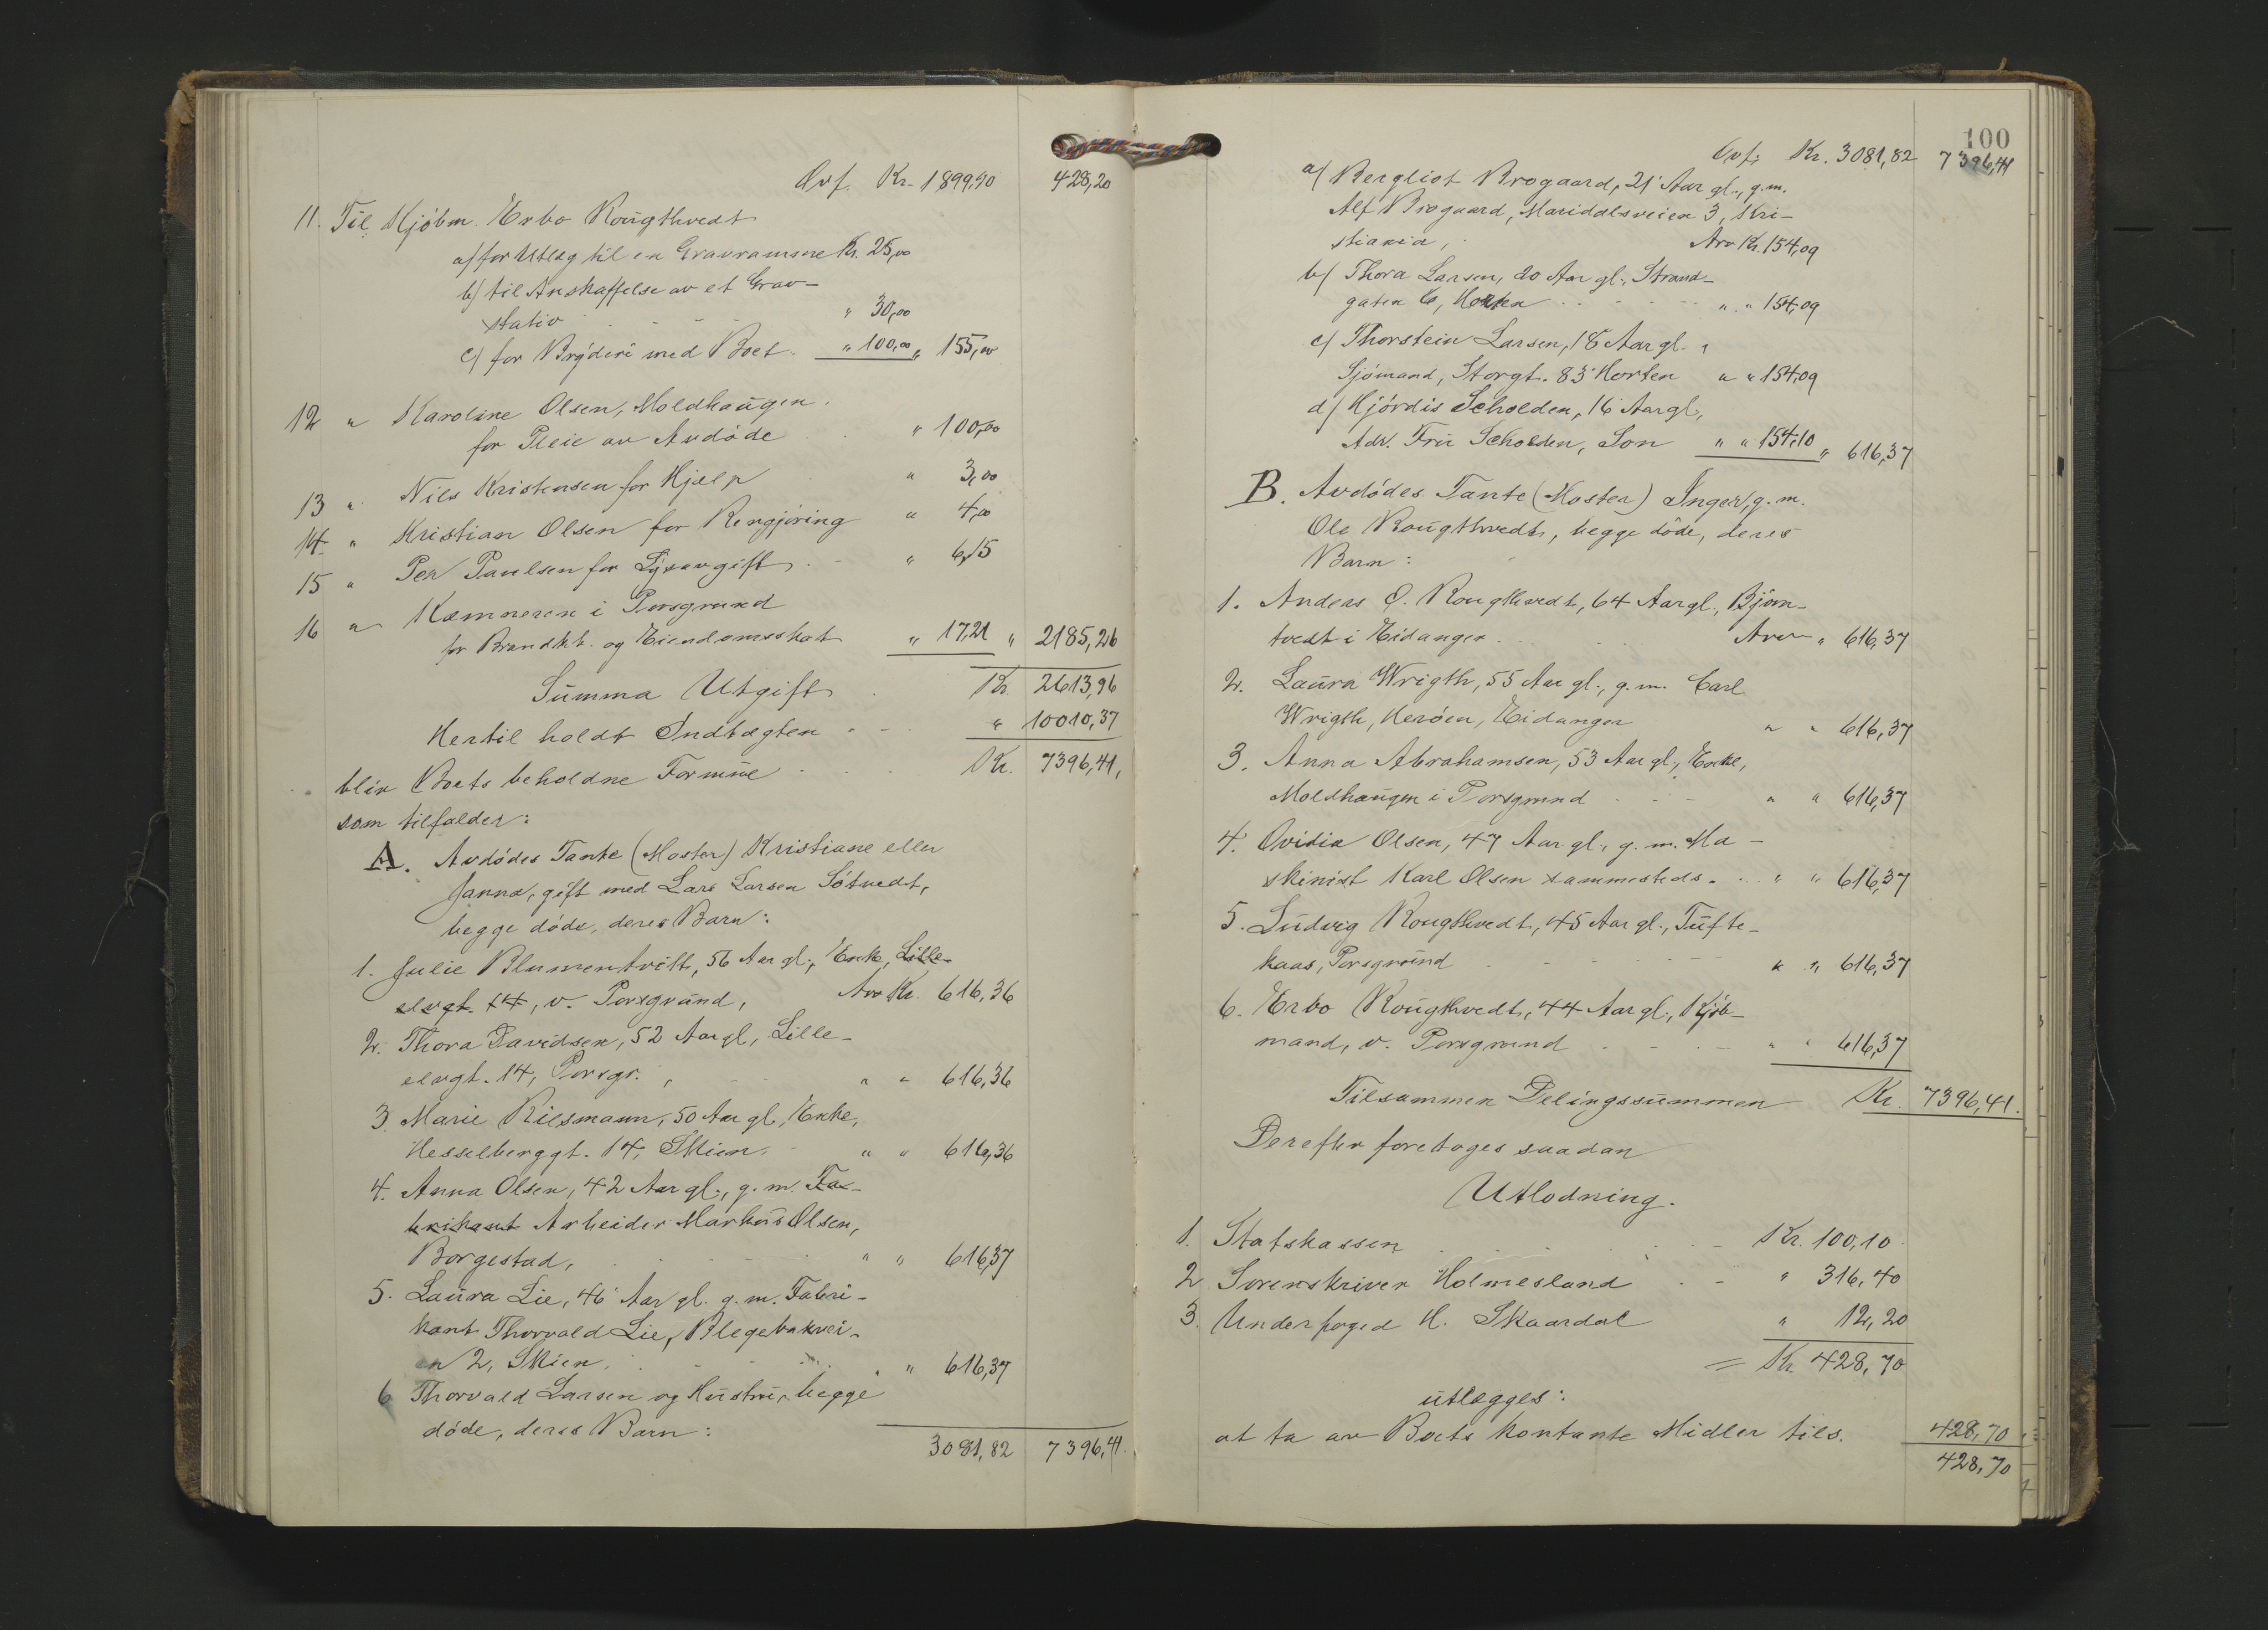 Ovf. Kr. 1899,90 428,20
11. Til Kjöbm. Erbo Rougthvedt
a/ for Utlæg til en Gravramme Kr. 25,00
b/ til Anskaffelse av et Grav-
stativ " 30,00
c/ for Bryderi med Boet. " 100,00 " 155,00
12 " Karoline Olsen, Moldhaugen.
for Pleie av Avdöde " 100,00
13 " Nils Kristensen for Hjælp " 3,00
14 " Kristian Olsen for Rengjöring " 4,00
15 " Per Paulsen for Lysavgift " 6,15
16 " Kæmneren i Porsgrund
for Brandkt. og Eiendomsskat " 17,21 " 2185,26
Summa Utgift Kr. 2613,96
Hertil holdt Indtægten " 10010,37
blir Boets beholdne Formue Kr. 7396,41,
som tilfalder:
A. Avdödes Tante (Moster) Kristiane eller
Janna, gift med Lars Larsen Sötvedt,
begge döde, deres Barn:
1. Julie Blumentvitt, 56 Aar gl., Enke, Lille-
elvgt. 14, v. Porsgrund, Arv Kr. 616,36
2. Thora Davidsen, 52 Aar gl, Lille-
elvgt. 14, Porsgr. " " 616,36
3. Marie Riismann, 50 Aar gl, Enke,
Hesselberggt. 14, Skien. " " 616,36
4. Anna Olsen, 42 Aar gl., g. m. Fa-
brikant Arbeider Markus Olsen,
Borgestad, " " 616,37
5. Laura Lie, 46 Aar gl. g. m. Fabri-
kant Thorvald Lie, Blegebakvei-
en 2, Skien. " 616,37
6 Thorvald Larsen og Hustru, begge
döde, deres Barn:
3081,82 7396,41.
100
Ovf. Kr. 3081,82 7396,41
a/ Bergliot Brogaard, 21 Aar gl., g. m.
Alf Brogaard, Maridalsveien 3, Kri-
stiania, Arv Kr. 154,09
b/ Thora Larsen, 20 Aar gl., Strand-
gaten 6, Horten " " 154,09
c/ Thorstein Larsen, 18 Aar gl.,
Sjömand, Storgt. 83 Horten " " 154,09
d/ Hjördis Scholden, 16 Aar gl,
Adr. Fru Scholden, Son " " 154,10 " 616,37
B. Avdödes Tante (Moster) Inger, g. m.
Ole Rougthvedt, begge döde, deres
Barn:
1. Anders O. Rougthvedt, 64 Aar gl., Bjørn-
tvedt i Eidanger Arv " 616,37
2. Laura Wrigth, 55 Aar gl., g. m. Carl
Wrigth, Heröen, Eidanger " " 616,37
3. Anna Abrahamsen, 53 Aar gl., Enke,
Moldhaugen i Porsgrund " " 616,37
4. Ovidia Olsen, 47 Aar gl., g. m. Ma-
skinist Karl Olsen sammesteds. " " 616,37
5. Ludvig Rougthvedt, 45 Aar gl., Tufte-
kaas, Porsgrund " " 616,37
6. Erbo Rougthvedt, 44 Aar gl., Kjöb-
mand, v. Porsgrund " " 616,37
Tilsammen Delingssummen Kr. 7396,41.
Derefter foretoges saadan
Utlodning.
1. Statskassen Kr. 100,10
2 Sorenskriver Holmesland " 316,40
3. Underfoged H. Skaardal " 12,20
= Kr. 428,70
utlægges:
at ta av Boets kontante Midler tils. 428,70
428,70